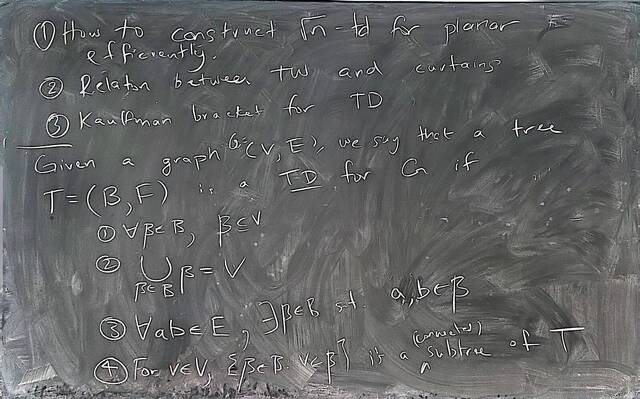 ① How to construct √n -td for planar
efficiently.
② Relaton between tw and curtains
③ Kauffman bracket for TD
Given a graph G=(V,E), we say that a tree
T=(B,F) is a TD for G if
① ∀β∈B, β⊆V
② ⋃β∈B β = V
③ ∀ab∈E, ∃β∈B s.t. a,b∈β
④ For v∈V, {β∈B: v∈β} is a (connected) subtree of T